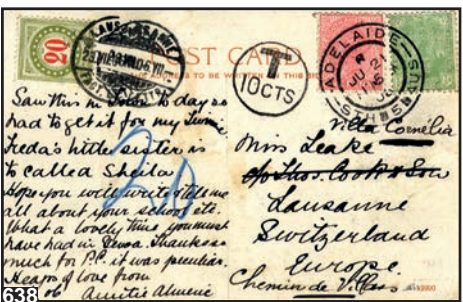 20
LAUSANNE
POST CARD
ADDRESS TO BE WRITTEN ON THIS
T
10CTS
ADELAIDE
Saw this in town to day so
had to get it for my
Freda's little sister is
to called Sheila
Hope you will write & tell me
all about your school etc.
What a lovely time you must
have had in Thanks so
much for P.C. it was peculiar.
Heaps of love from
06 Auntie
20
Villa Cornélia
Miss Leake
c/o Thos. Cook & Son
Lausanne
Switzerland
Europe
Chemin de Villars
638